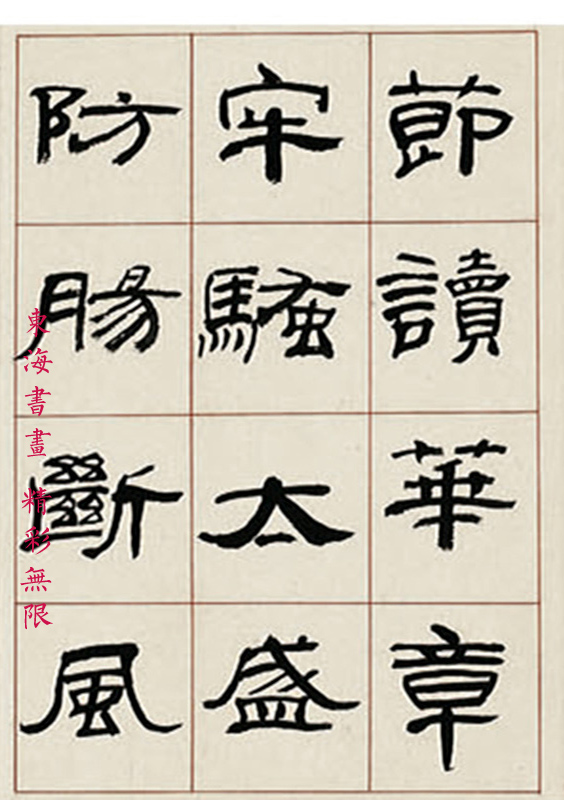 節讀華章
牢騷太盛
防腸斷風
東海書畫 精彩無限